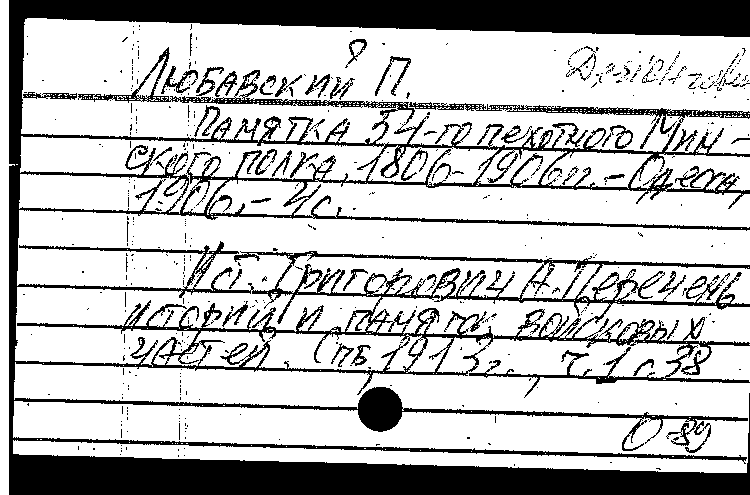 Любавский П.
Памятка 54-го пехотного Мин-
ского полка, 1806-1906гг. - Одесса,
1906. - 4с.
Ист.: Григорович А. Перечень
историй и памяток войсковых
частей. Спб, 1913г., ч.1 с.38
О-89